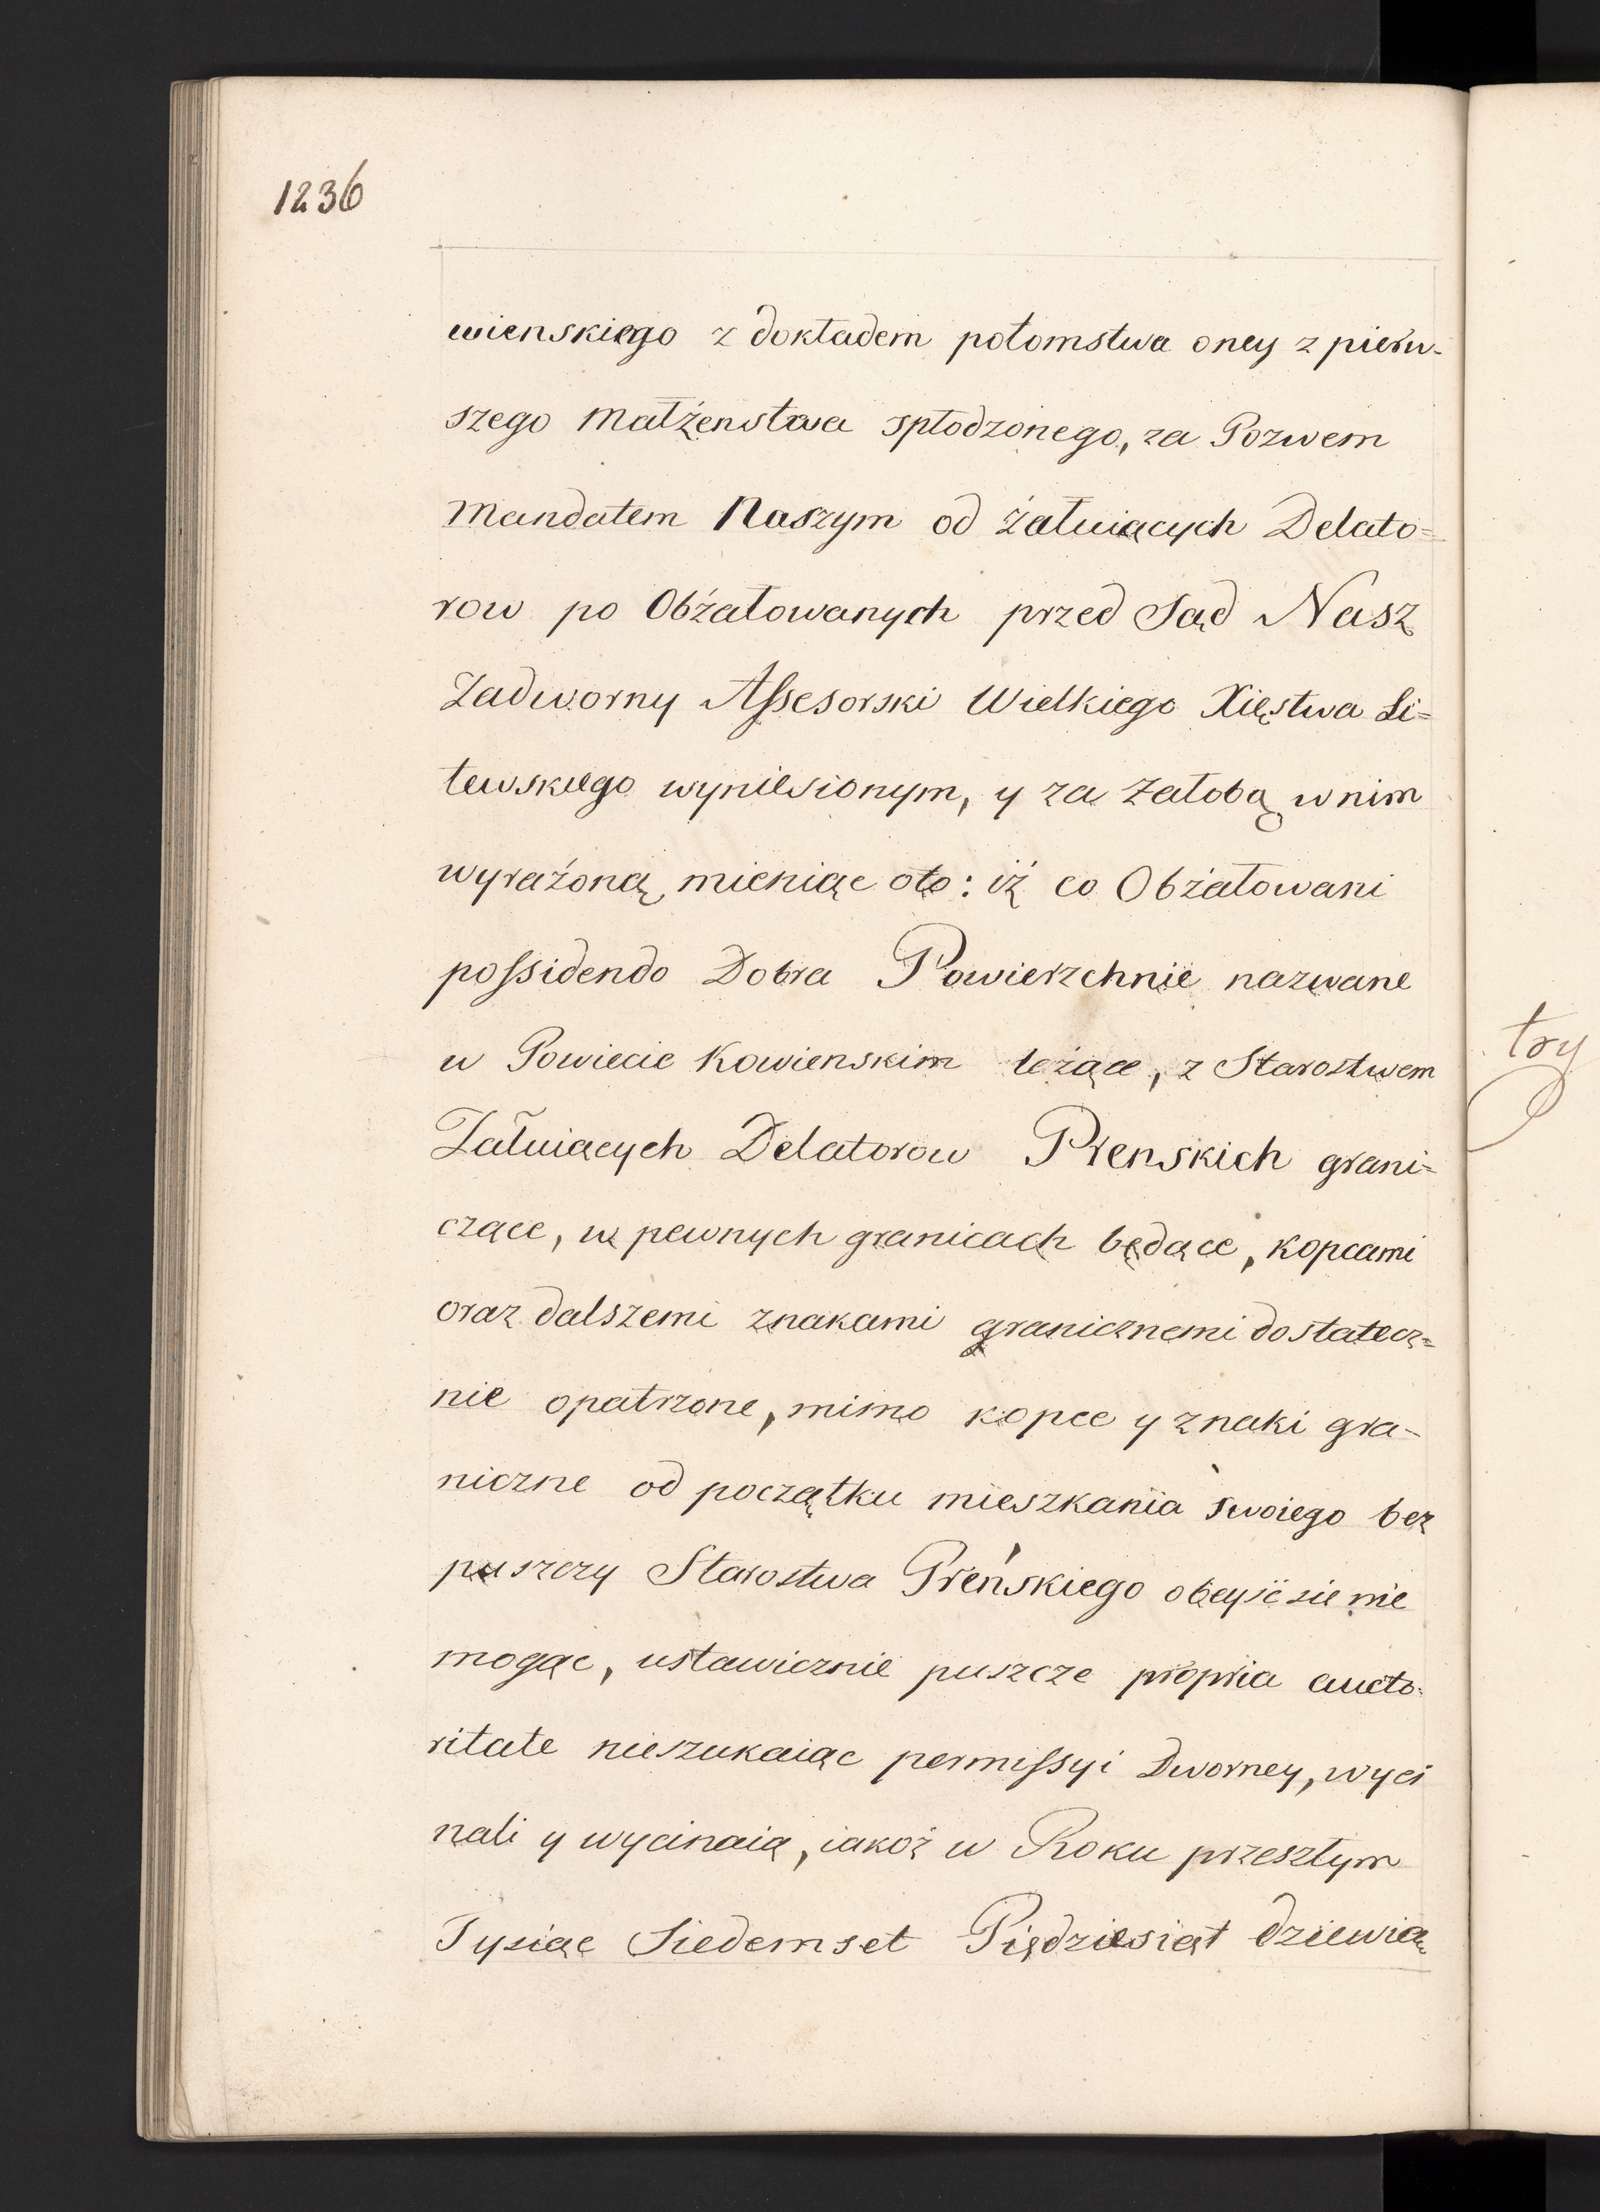 1236
wienskiego z dokładem potomstwa oney z pierw-
szego Małżenstwa spłodzonego, za Pozwem
Mandatem Naszym od żałuiących Delato=
row po Obżałowanych przed Sąd Nasz
Zadworny Assesorski Wielkiego Xięstwa Li=
tewskiego wyniesionym, y za Załobą w nim
wyrażoną mieniąc oto: iż co Obżałowani
possidendo Dobra Powierzchnie nazwane
w Powiecie Kowienskim leżące, z Starostwem
Załuiących Delatorow Prenskich grani=
czące, w pewnych granicach będące, kopcami
oraz dalszemi znakami granicznemi dostatecz=
nie opatrzone, mimo kopce y znaki gra-
niczne od początku mieszkania swoiego bez
puszczy Starostwa Preńskiego obeyść sie nie
mogąc, ustawicznie puszcze propria aucto=
ritate nieszukaiąc permissyi Dworney, wyci
nali y wycinaią, iakoż w Roku przeszłym
Tysiąc Siedemset Piędziesiąt dziewią
try